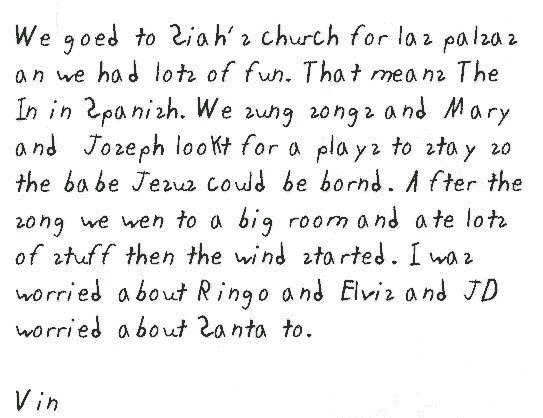 We goed to Siah's church for las palsas
an we had lots of fun. That means The
In in Spanish. We sung songs and Mary
and Joseph lookt for a plays to stay so
the babe Jesus could be bornd. After the
song we wen to a big room and ate lots
of stuff then the wind started. I was
worried about Ringo and Elvis and JD
worried about Santa to.
Vin